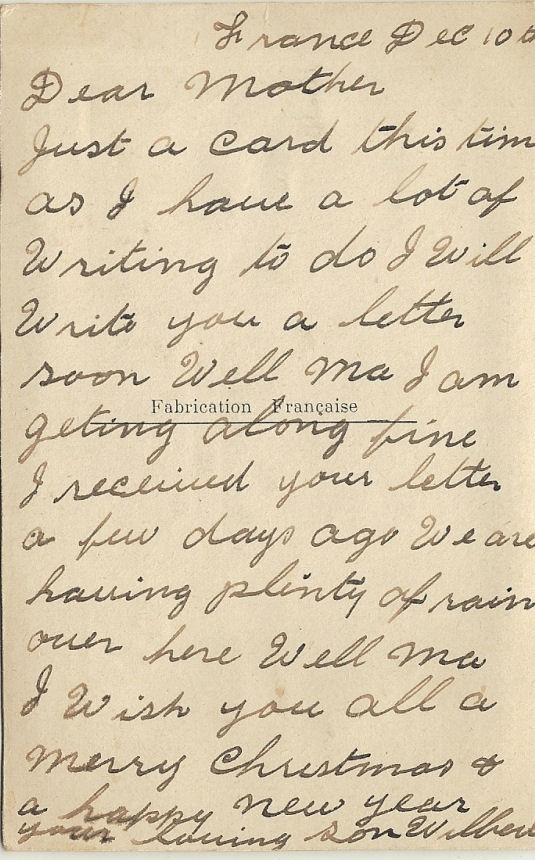 France Dec 10th
Dear Mother
Just a card this tim
as I have a lot of
Writing to do I Will
Write you a letter
soon Well Ma I am
Fabrication Française
geting along fine
I received your letter
a few days ago We are
having plenty of rain
over here Well Ma
I Wish you all a
Merry Christmas &
a happy new year
your loving son Wilber